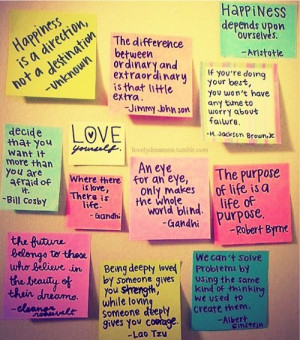 Happiness
is a direction,
not a destination
-unknown
The difference
between
ordinary and
extraordinary
is that little
extra.
-Jimmy Johnson
HAPPINESS
depends upon
ourselves.
-Aristotle
If you're doing
your best,
you won't have
any time to
worry about
failure.
-H. Jackson Brown, Jr.
decide
that you
want it
more than
you are
afraid of
it.
-Bill Cosby
LOVE
yourself.
Where there
is love,
There is
life.
-Gandhi
An eye
for an eye,
only makes
the whole
world blind.
-Gandhi
The purpose
of life is a
life of
purpose.
-Robert Byrne
the future
belongs to those
who believe in
the beauty of
their dreams.
-eleanor
roosevelt
Being deeply loved
by someone gives
you strength,
while loving
someone deeply
gives you courage.
-Lao Tzu
We can't solve
Problems by
using the same
kind of thinking
we used to
create them.
-Albert
Einstein